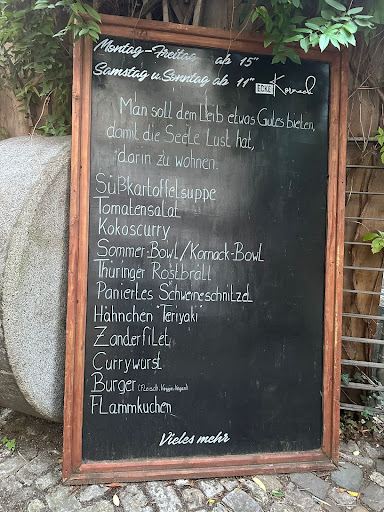 Montag-Freitag ab 15⁰⁰
Samstag u. Sonntag ab 11⁰⁰ ECKE Kornack
Man soll dem Leib etwas Gutes bieten,
damit die Seele Lust hat,
darin zu wohnen.
Süßkartoffelsuppe
Tomatensalat
Kokoscurry
Sommer-Bowl/Kornack-Bowl
Thüringer Rostbrätl
Paniertes Schweineschnitzel
Hähnchen "Teriyaki"
Zanderfilet
Currywurst
Burger (Fleisch, Veggie, Vegan)
Flammkuchen
Vieles mehr